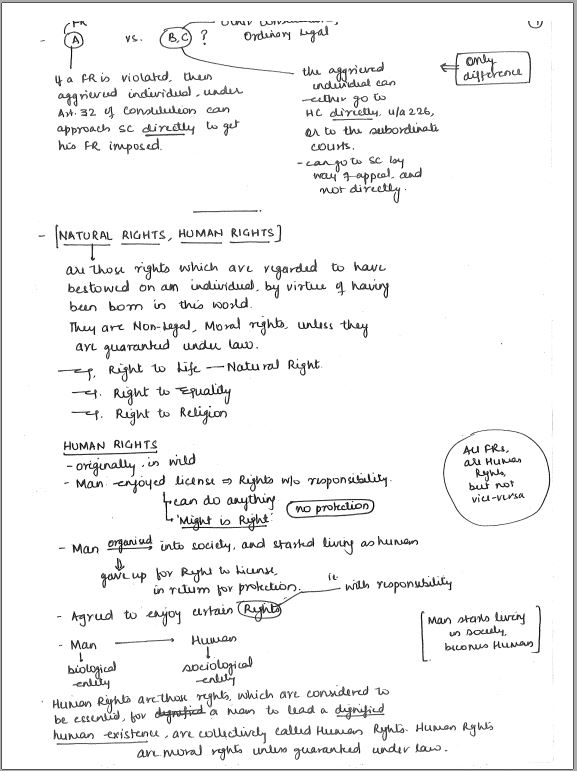 FR
- (A) vs. (B,C) ?
Ordinary Legal
(1)
If a FR is violated, then
aggrieved individual, under
Art. 32 of Constitution can
approach SC directly to get
his FR imposed.
the aggrieved
individual can
- either go to
HC directly, u/a 226,
or to the subordinate
courts.
- can go to SC by
way of appeal, and
not directly.
Only
difference
- [NATURAL RIGHTS, HUMAN RIGHTS]
are those rights which are regarded to have
bestowed on an individual, by virtue of having
been born in this world.
They are Non-Legal, Moral rights, unless they
are guaranteed under law.
eg. Right to Life — Natural Right.
eg. Right to Equality
eg. Right to Religion
HUMAN RIGHTS
- originally, in wild
- Man enjoyed license ⇒ Rights w/o responsibility.
can do anything
'Might is Right'
no protection
All FRs,
are Human
Rights,
but not
vice-versa
- Man organised into society, and started living as human
gave up for Right to License,
in return for protection.
ie. with responsibility
- Agreed to enjoy certain Rights
- Man → Human
biological
entity
sociological
entity
Man starts living
in society,
becomes Human
Human Rights are those rights, which are considered to
be essential, for dignified a man to lead a dignified
human existence, are collectively called Human Rights. Human Rights
are moral rights unless guaranteed under law.